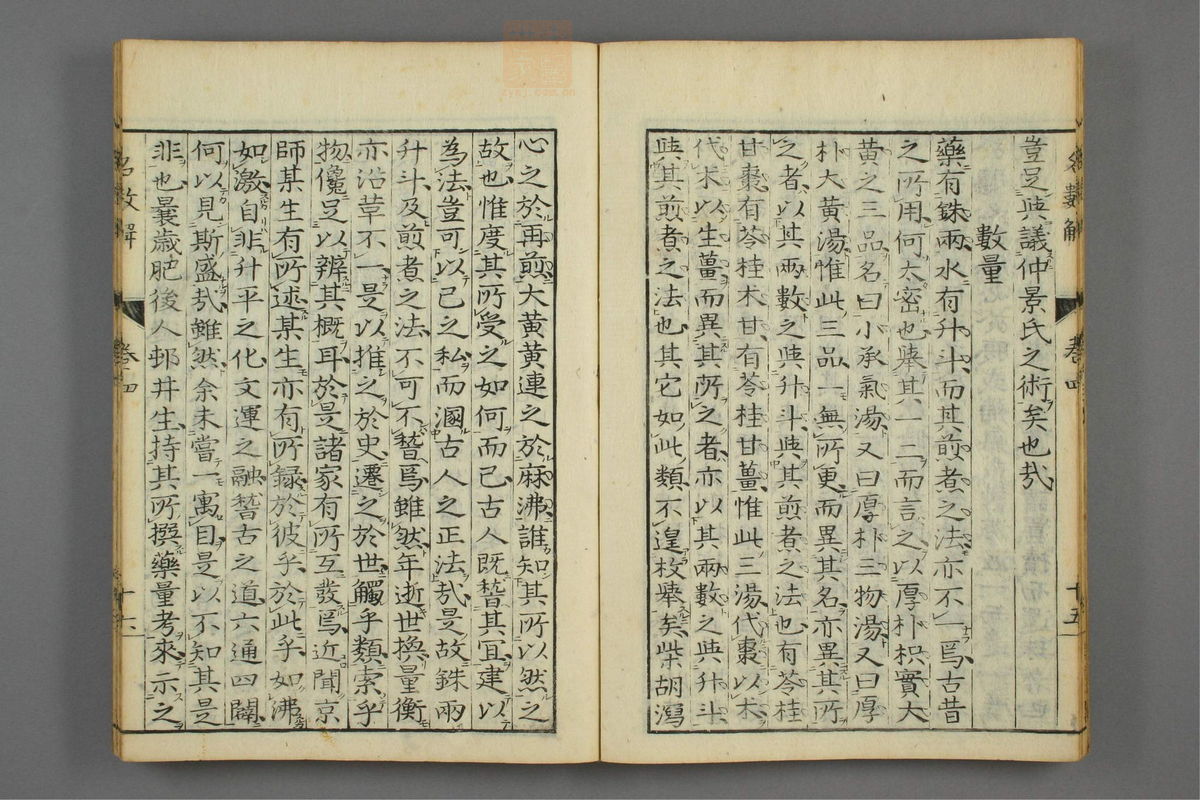 豈足與議仲景氏之術矣也哉
數量
藥有銖兩水有升斗而其煎煮之法亦不一焉古昔
之所用何太密也擧其一二而言之以厚朴枳實大
黃之三品名曰小承氣湯又曰厚朴三物湯又曰厚
朴大黃湯惟此三品一無所更而異其名亦異其所
之者以其兩數之與升斗與其煎煮之法也有苓桂
甘棗有苓桂朮甘有苓桂甘薑惟此三湯代棗以朮
代朮以生薑而異其所之者亦以其兩數之與升斗
與其煎煮之法也其它如此類不遑枚擧矣柴胡瀉
心之於再煎大黃黃連之於麻沸誰知其所以然之
故也惟度其所受之如何而已古人既嘗其宜建以
為法豈可以己之私而溷古人之正法哉是故銖兩
升斗及煎煮之法不可不嵆焉雖然年逝世換量衡
亦沿革不一是以推之於史遷之於世觸乎類索乎
物僅足以辨其概耳於是諸家有所互發焉近聞京
師某生有所述某生亦有所錄於彼乎於此乎如沸
如激自非升平之化文運之融嵆古之道六通四闢
何以見斯盛哉雖然余未嘗一寓目是以不知其是
非也曩歲肥後人邨井生持其所撰藥量考來示之
卷四
十五
卷四
十六